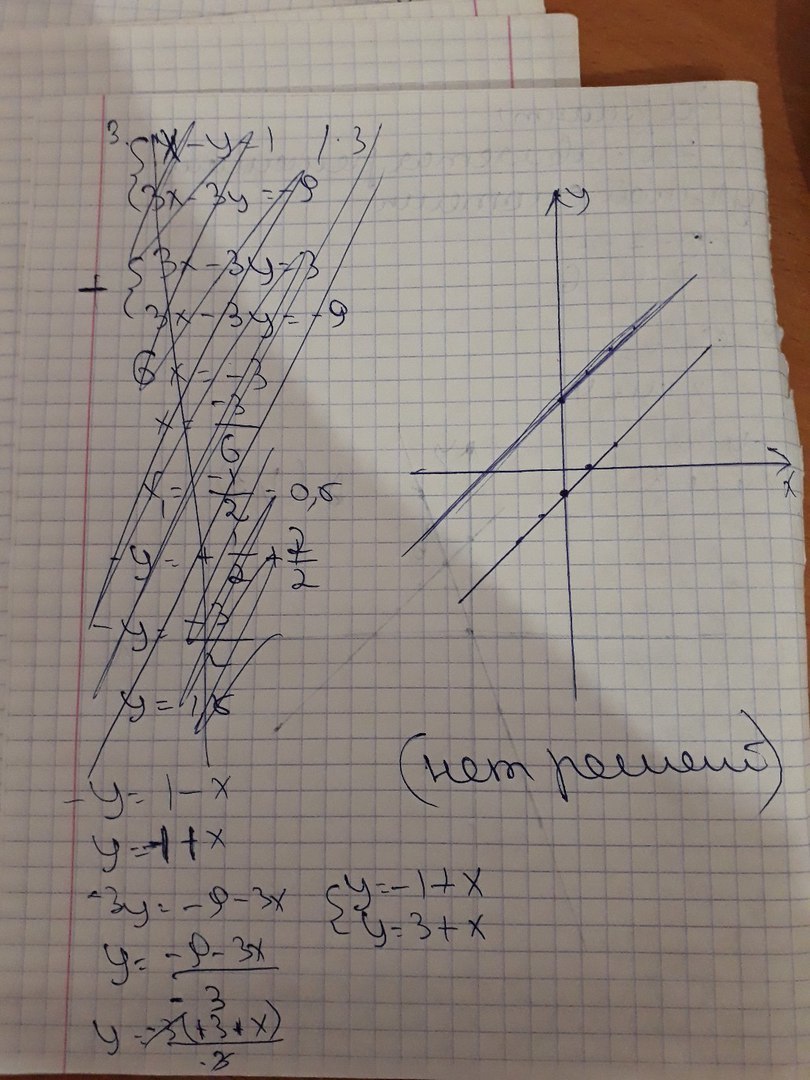 3. {x - y = 1 | · 3
{3x - 3y = -9
+ {3x - 3y = 3
{3x - 3y = -9
6x = -3
x = -3/6
x₁ = -1/2 = 0,5
-y = + 1/2 + 2/2
-y = +3/2
y = 1,5
-y = 1 - x
y = -1 + x
-3y = -9 - 3x
y = -9 - 3x / -3
y = -3(+3+x) / -3
y
x
(нет решений)
{y = -1 + x
{y = 3 + x